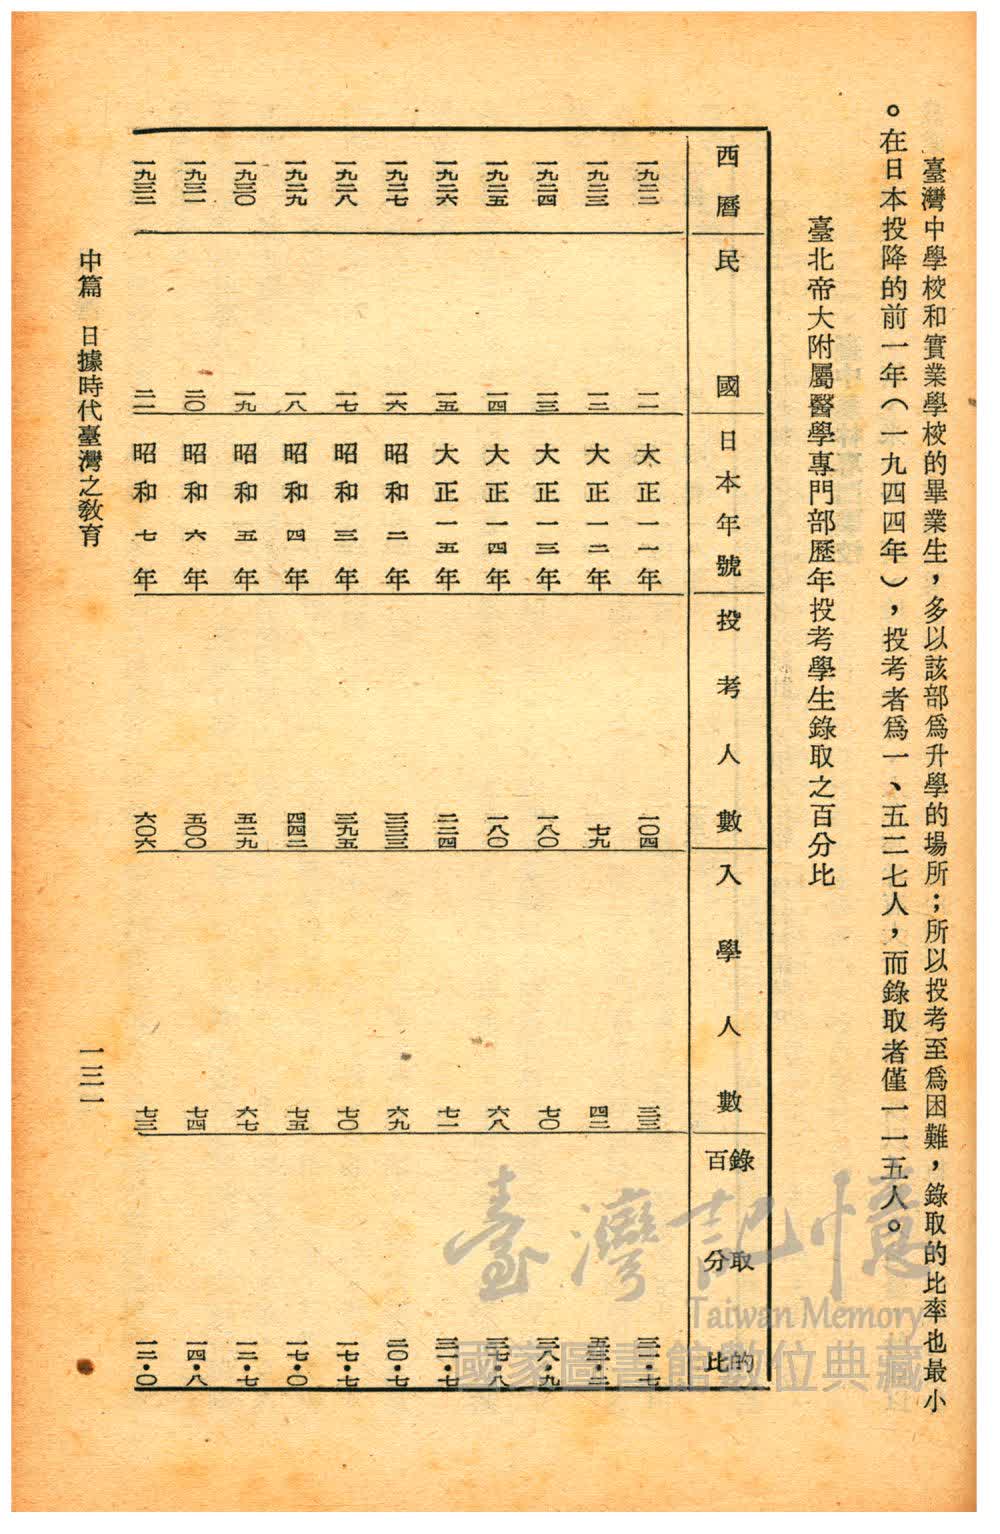 臺灣中學校和實業學校的畢業生，多以該部爲升學的場所；所以投考至爲困難，錄取的比率也最小
。在日本投降的前一年（一九四四年），投考者爲一、五二七人，而錄取者僅一一五人。
臺北帝大附屬醫學專門部歷年投考學生錄取之百分比
西曆 民國 日本年號 投考人數 入學人數 錄取的百分比
一九二二 一一 大正一一年 一〇四 三三 三一・七
一九二三 一二 大正一二年 七九 四二 五三・二
一九二四 一三 大正一三年 一八〇 七〇 三八・九
一九二五 一四 大正一四年 一八〇 六八 三七・八
一九二六 一五 大正一五年 二二四 七一 三一・七
一九二七 一六 昭和二年 三三三 六九 二〇・七
一九二八 一七 昭和三年 三九五 七〇 一七・七
一九二九 一八 昭和四年 四四二 七五 一七・〇
一九三〇 一九 昭和五年 五二九 六七 一二・七
一九三一 二〇 昭和六年 五〇〇 七四 一四・八
一九三二 二一 昭和七年 六〇六 七三 一二・〇
中篇 日據時代臺灣之教育
一三一
臺灣記憶
Taiwan Memory
國家圖書館數位典藏